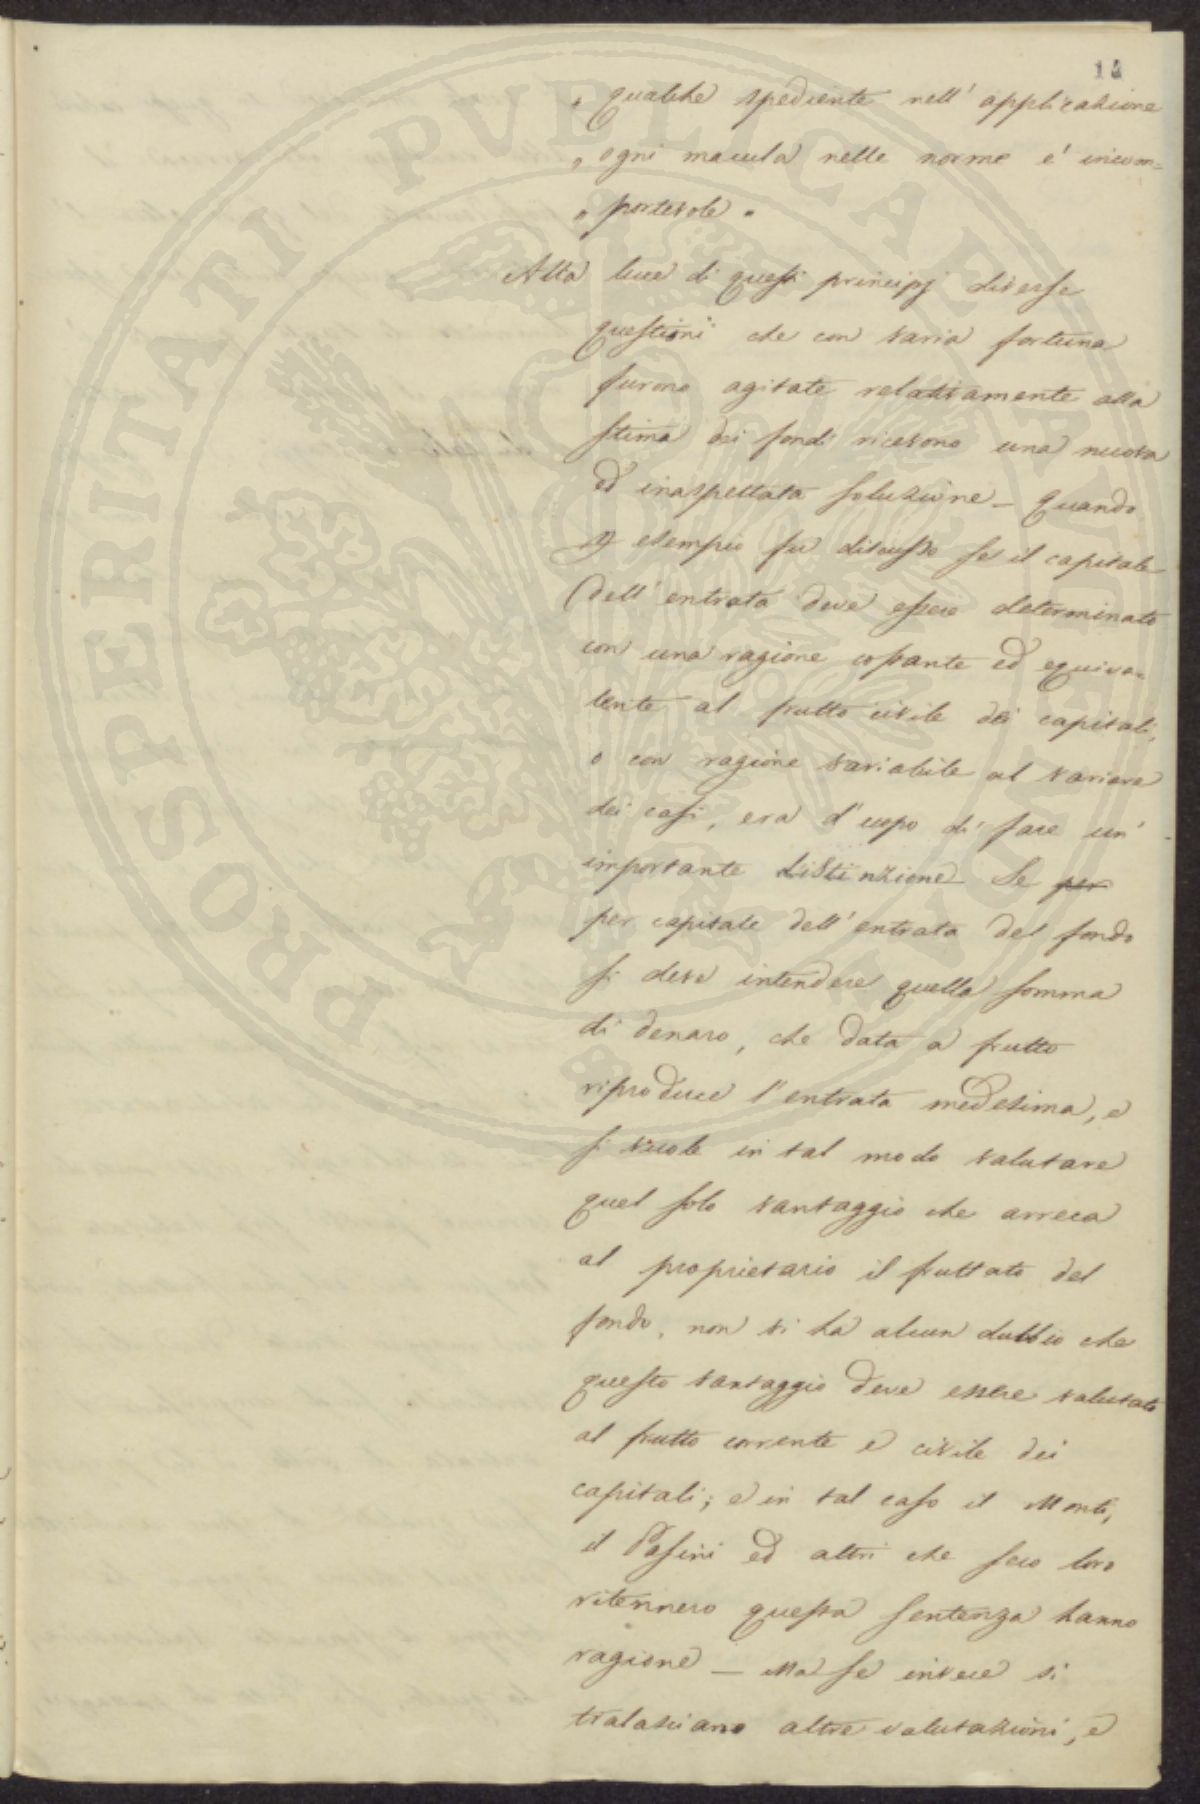 14
„ qualche spediente nell' applicazione
„ ogni macula nelle norme e' incom=
„ portevole „
Alla luce di questi principj diverse
questioni che con varia fortuna
furono agitate relativamente alla
stima dei fondi ricevono una nuova
ed inaspettata soluzione — Quando
p esempio fu discusso se il capitale
dell' entrata deve essere determinato
con una ragione costante ed equiva=
lente al frutto civile dei capitali,
o con ragione variabile al variare
dei casi, era d'uopo di fare un'
importante distinzione Se per
per capitale dell' entrata del fondo
si deve intendere quella somma
di denaro, che data a frutto
riproduce l'entrata medesima, e
si vuole in tal modo valutare
quel solo vantaggio che arreca
al proprietario il fruttato del
fondo, non vi ha alcun dubbio che
questo vantaggio deve essere valutato
al frutto corrente e civile dei
capitali; e in tal caso il Monti,
il Pasini ed altri che seco loro
ritennero questa sentenza hanno
ragione — Ma se invece si
tralasciano altre valutazioni, e
PROSPERITATI PVBLICAE